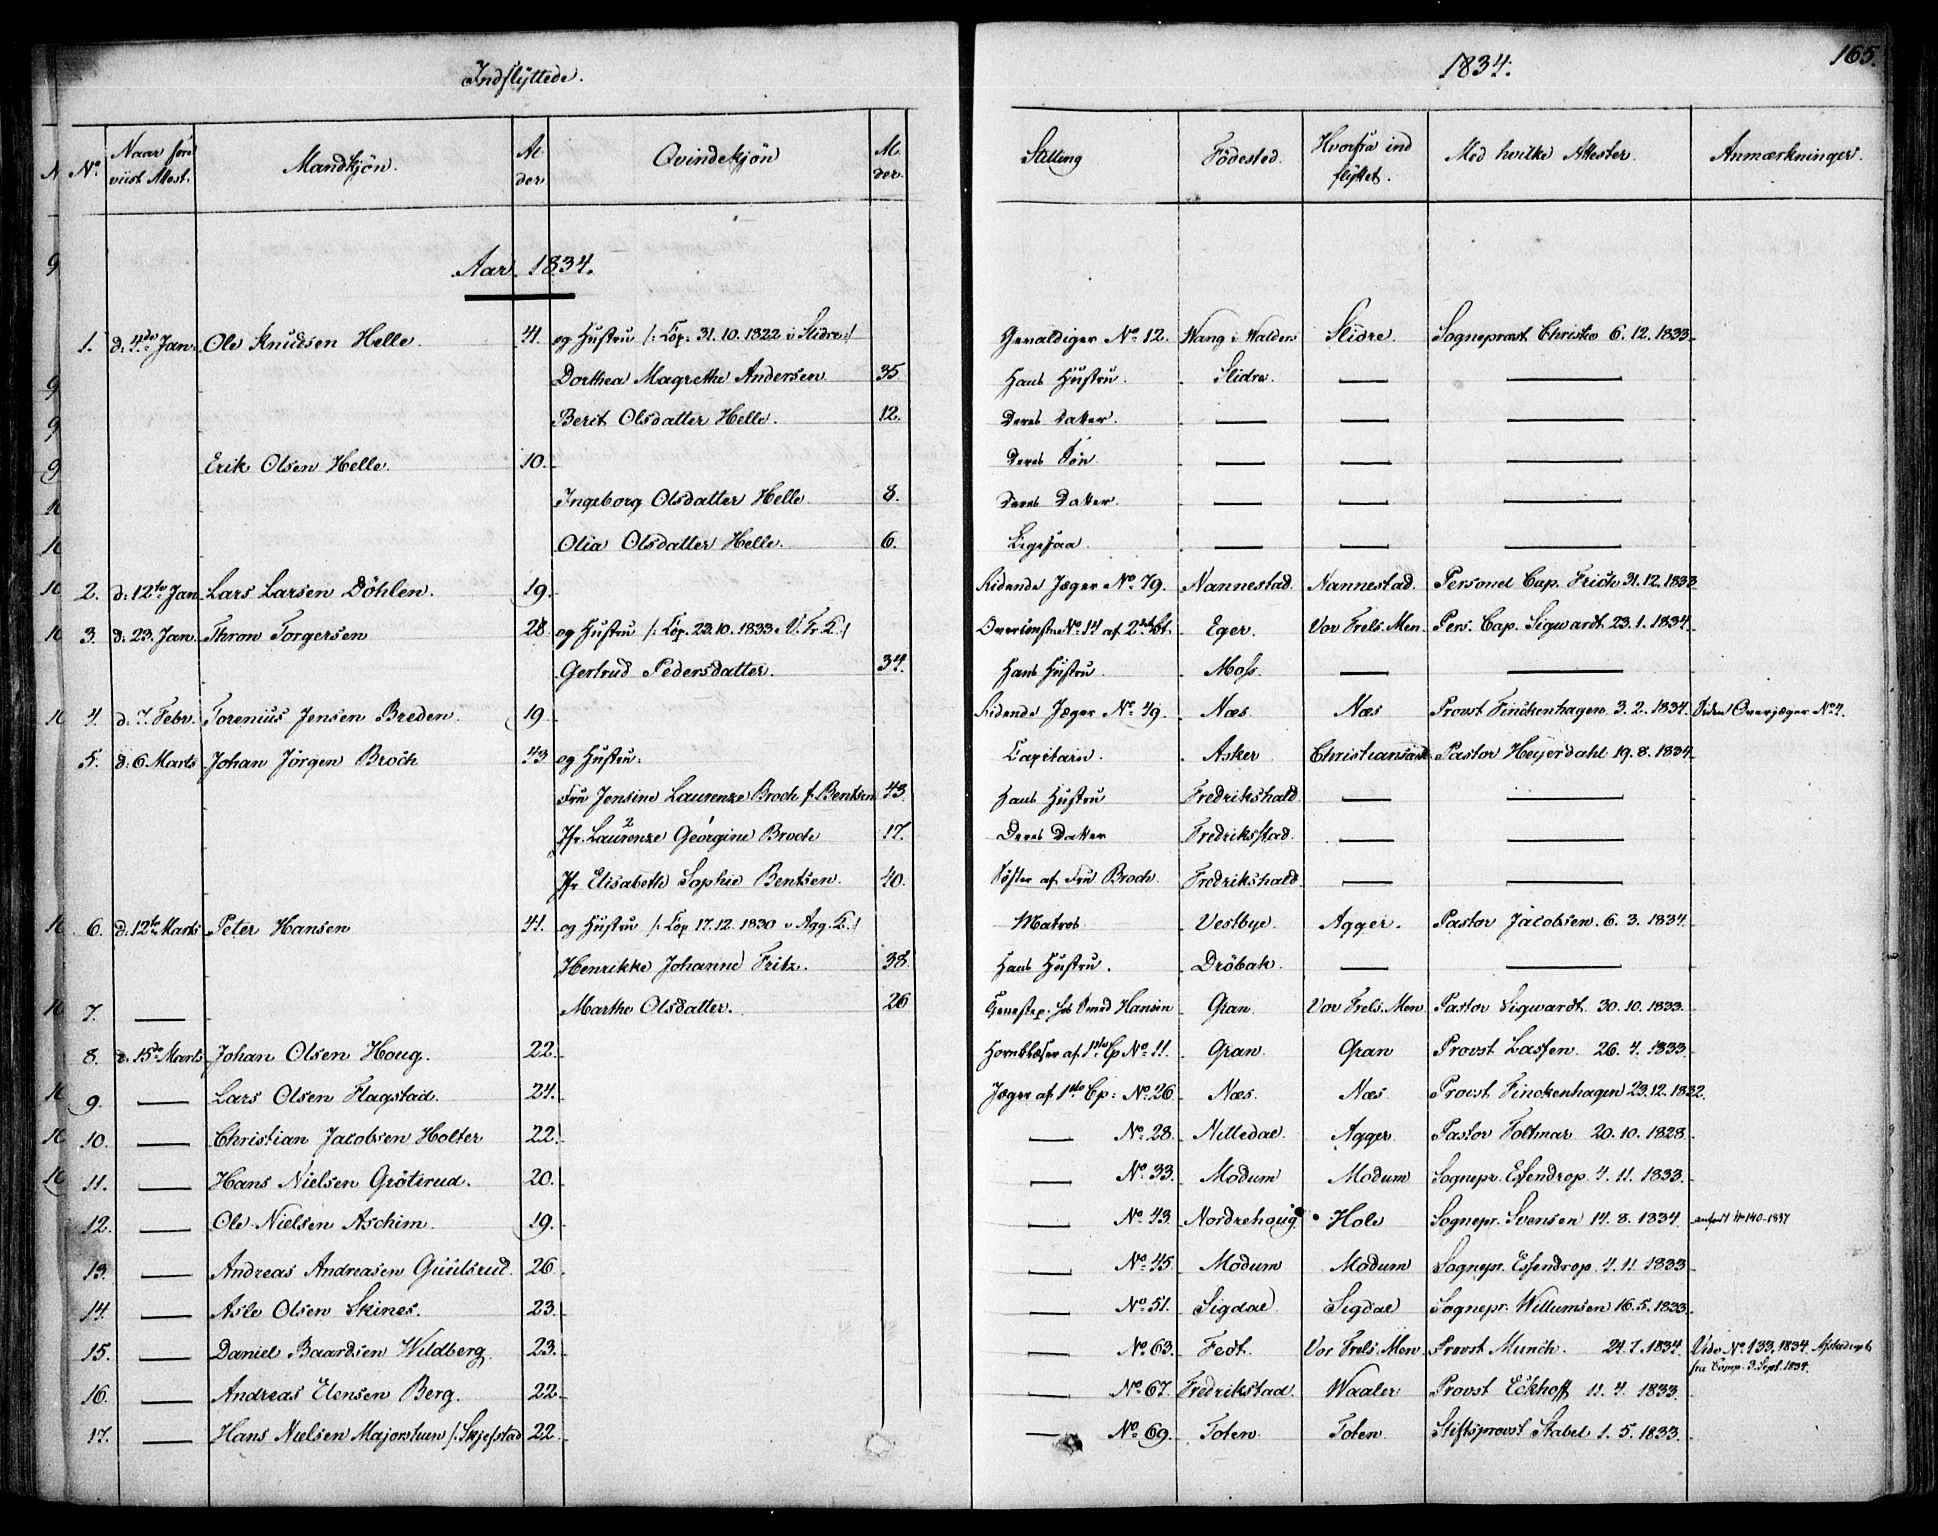 Indflÿttede.
1834.
165.
No. Naar fore viist Attest. Mandkjön. Al der Qvindekjön Al der. Stilling Födested. Hvorfra ind flÿttet. Med hvilke Attester. Anmærkninger.
Aar 1834.
1. d. 4de Jan. Ole Knudsen Helle. 41. og Hustru /: Cop. 31.10.1822 i Slidre :/ Gevaldiger No. 12. Wang i Walders Slidre. Sogneprast Christie 6.12.1833.
Dorthea Magrethe Andersen 35. Hans Hustru. Slidre. — —
Berit Olsdatter Helle. 12. Deres Datter. — — —
Erik Olsen Helle. 10. Deres Sön. — — —
Ingeborg Olsdatter Helle. 8. Deres Datter. — — —
Olia Olsdatter Helle. 6. Ligesaa. — — —
2. d. 12te Jan Lars Larsen Döhlen. 19. Ridende Jæger No. 79. Nannestad. Nannestad. Personel Cap. Frich 31.12.1833
3. d. 23. Jan. Thron Torgersen 28. og Hustru /: Cop. 23.10.1833 i V. Fr. K. :/ No. 14 af 2det Eger. Vor Frels. Men. Pers. Cap. Sigwardt 23.1.1834.
Gertrud Pedersdatter. 34. Hans Hustru. Moss. — —
4. d. 7. Febr. Torenius Jensen Breden. 19. Ridende Jæger No. 49. Næs. Næs Provst Finckenhagen. 3.2.1834. Siden Overjæger No. 4.
5. d. 6 Marts Johan Jörgen Broch 43 og Hustru. Capitain. Asker Christiansand Pastor Heÿerdahl 19.8.1834.
Fru Jensine Laurenze Broch f. Bentsen 43. Hans Hustru Fredrikshald. — —
Jfr. Laurenze 2 Georgine 1 Broch 17. Deres Datter Fredriksstad. — —
Jfr Elisabeth Sophie Bentsen. 40. Söster af Fru Broch. Fredrikshald. — —
6. d. 12te Marts Peter Hansen 41. og Hustru /: Cop 17.12.1830 i Agg. K. :/ Matros Vestbÿe. Agger. Pastor Jacobsen. 6.3.1834.
Henrikke Johanne Fritz. 38. Hans Hustru. Dröbak. — —
7. — Marthe Olsdatter. 26 Hansen Gran. Vor Frels. Men Pastor Sigwardt. 30.10.1833.
8. d. 15de Marts Johan Olsen Houg. 22. Hornblæser af 1ste Cp No. 11. Gran. Gran Provst Lassen. 26.4.1833.
9. — Lars Olsen Flagstad. 24. Jæger af 1ste Cp: No. 26. Næs. Næs. Provst Finckenhagen 23.12.1832.
10. — Christian Jacobsen Holter 22. — No. 28. Nittedal. Agger Pastor Foltmar 20.10.1828.
11. — Hans Nielsen Grötterud. 20. — No. 33. Modum Modum Sognepr. Essendrop. 4.11.1833.
12. — Ole Nielsen Aschim. 19. — No. 43. Nordrehoug. Hole Sognepr. Svensen 14.8.1834. anført No 140-1837
13. — Andreas Andreasen Guulsrud. 26. — No. 45. Modum Modum. Sognepr. Essendrop. 4.11.1833
14. — Asle Olsen Skines. 23. — No. 51. Sigdal. Sigdal Sognepr. Willumsen 16.5.1833.
15. — Daniel Baardsen Wildberg. 23. — No. 63. Fedt. Vor Frels. Men Provst Munch. 24.7.1834. Vide No. 133, 1834. Afskediget
fra Comp. 3 Sept. 1834.
16. — Andreas Elensen Berg. 22. — No. 67. Fredrikstad. Waaler Provst Eckhoff 11.4.1833.
17. — Hans Nielsen Majorstuen /: Skjefstad 22. — No. 69. Toten. Toten. Stiftsprovst Stabel 1.5.1833.